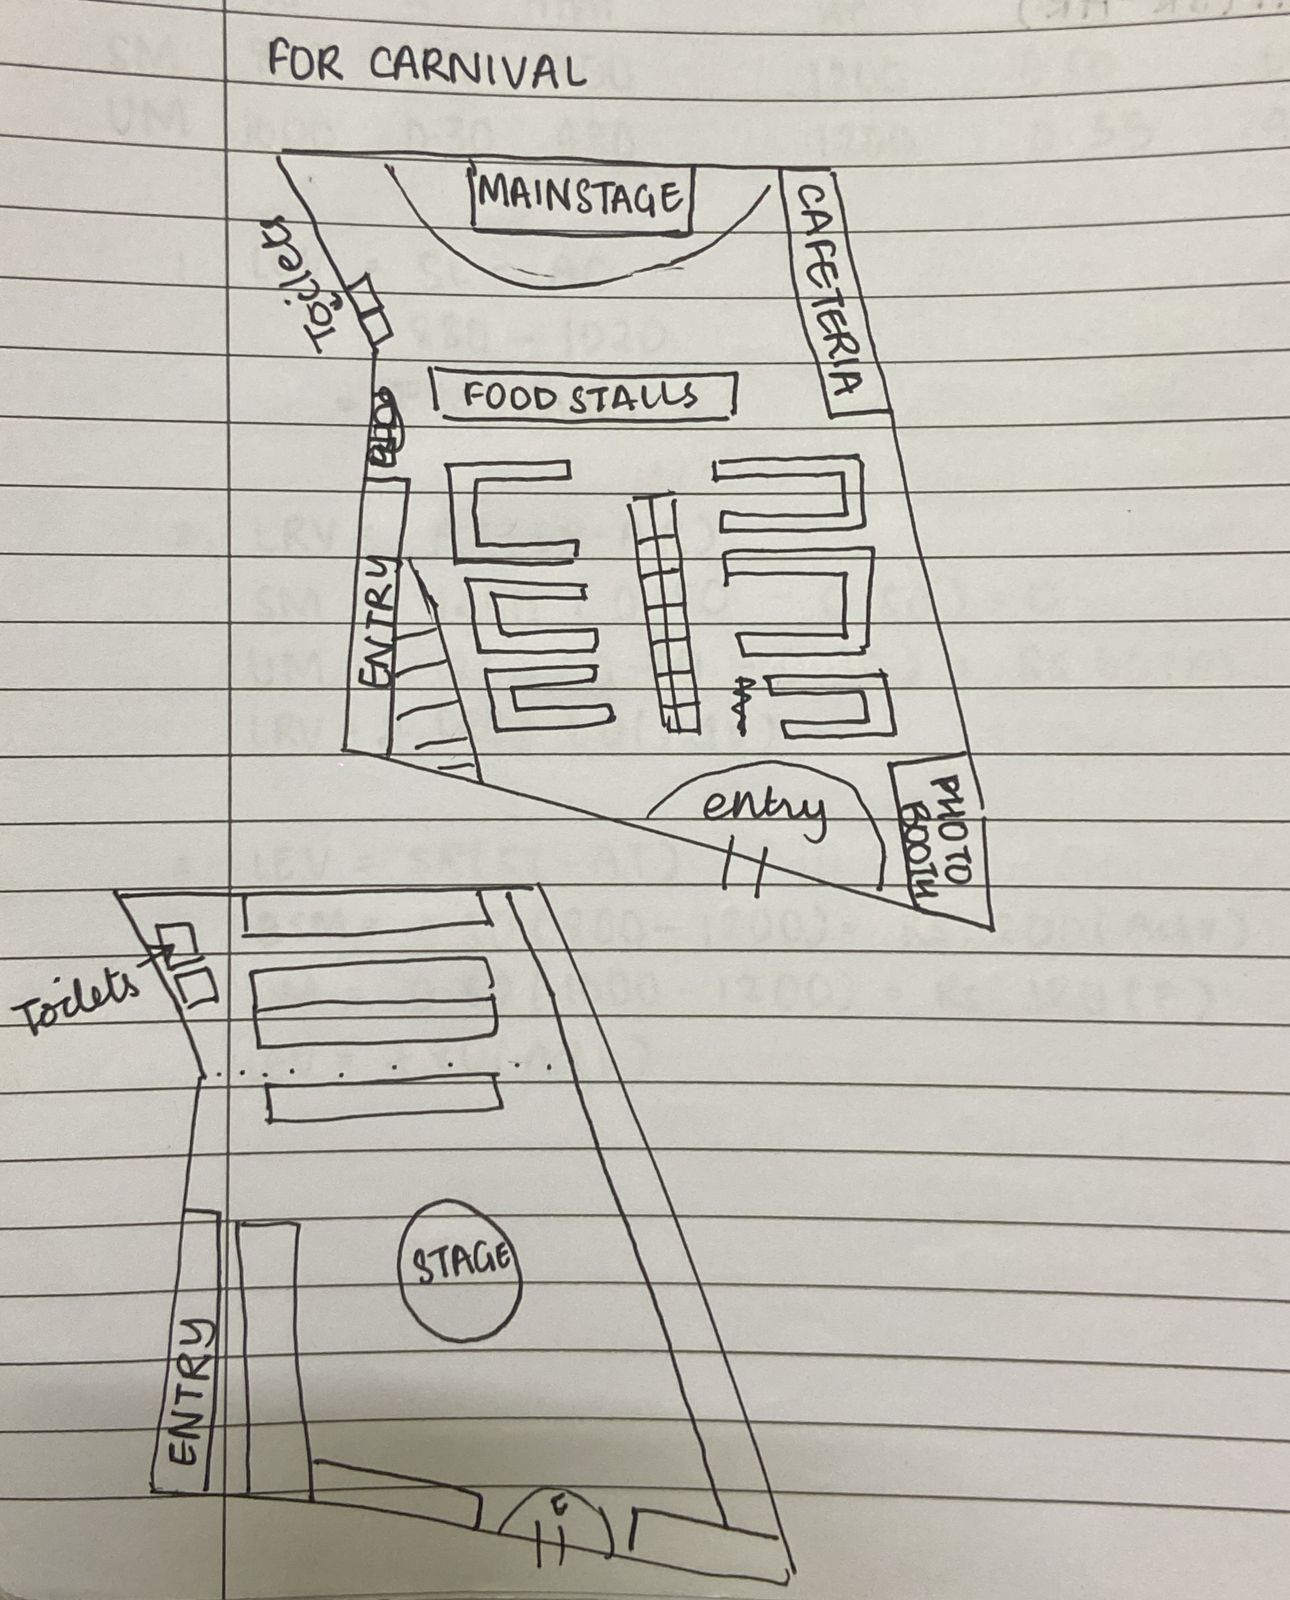 FOR CARNIVAL
MAINSTAGE
CAFETERIA
Toilets
FOOD STALLS
ENTRY
entry
PHOTO
BOOTH
Toilets
STAGE
ENTRY
E